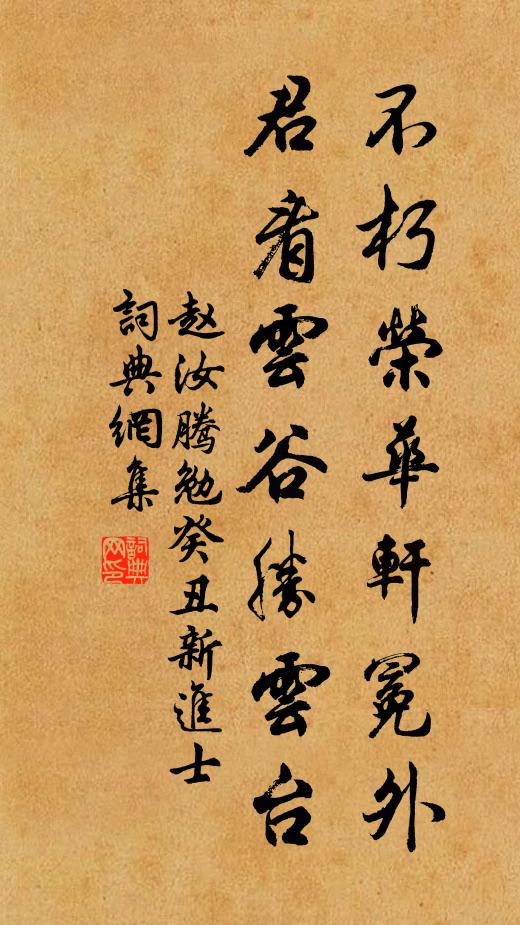 不朽榮華軒冕外
君看雲谷勝雲台
赵汝騰勉癸丑新進士
詞典網集
詞典网印